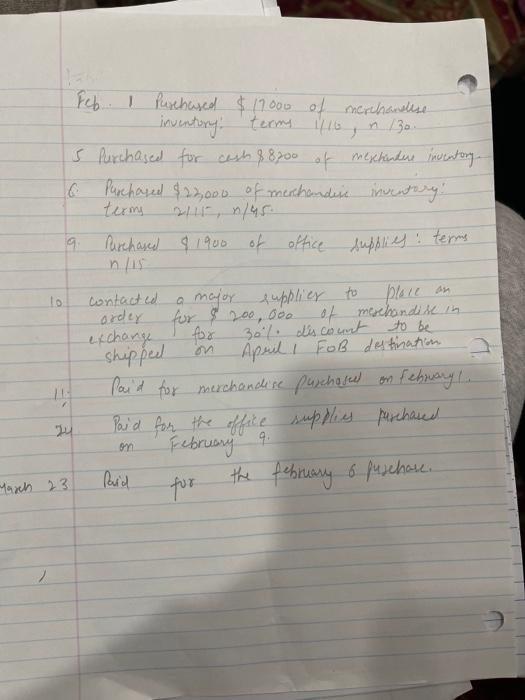 Feb. 1 Purchased $17000 of merchandise
inventory: terms 1/10, n/30.
5 Purchased for cash $8200 of merchandise inventory.
6. Purchased $23,000 of merchandise inventory:
terms 2/15, n/45.
9. Purchased $1900 of office supplies: terms
n/15
10 contacted a major supplier to place an
order for $200,000 of merchandise in
exchange for 30% discount to be
shipped on April 1 FOB destination
11. Paid for merchandise purchased on February 1.
24 Paid for the office supplies purchased
on February 9.
March 23 Paid for the february 6 purchase.